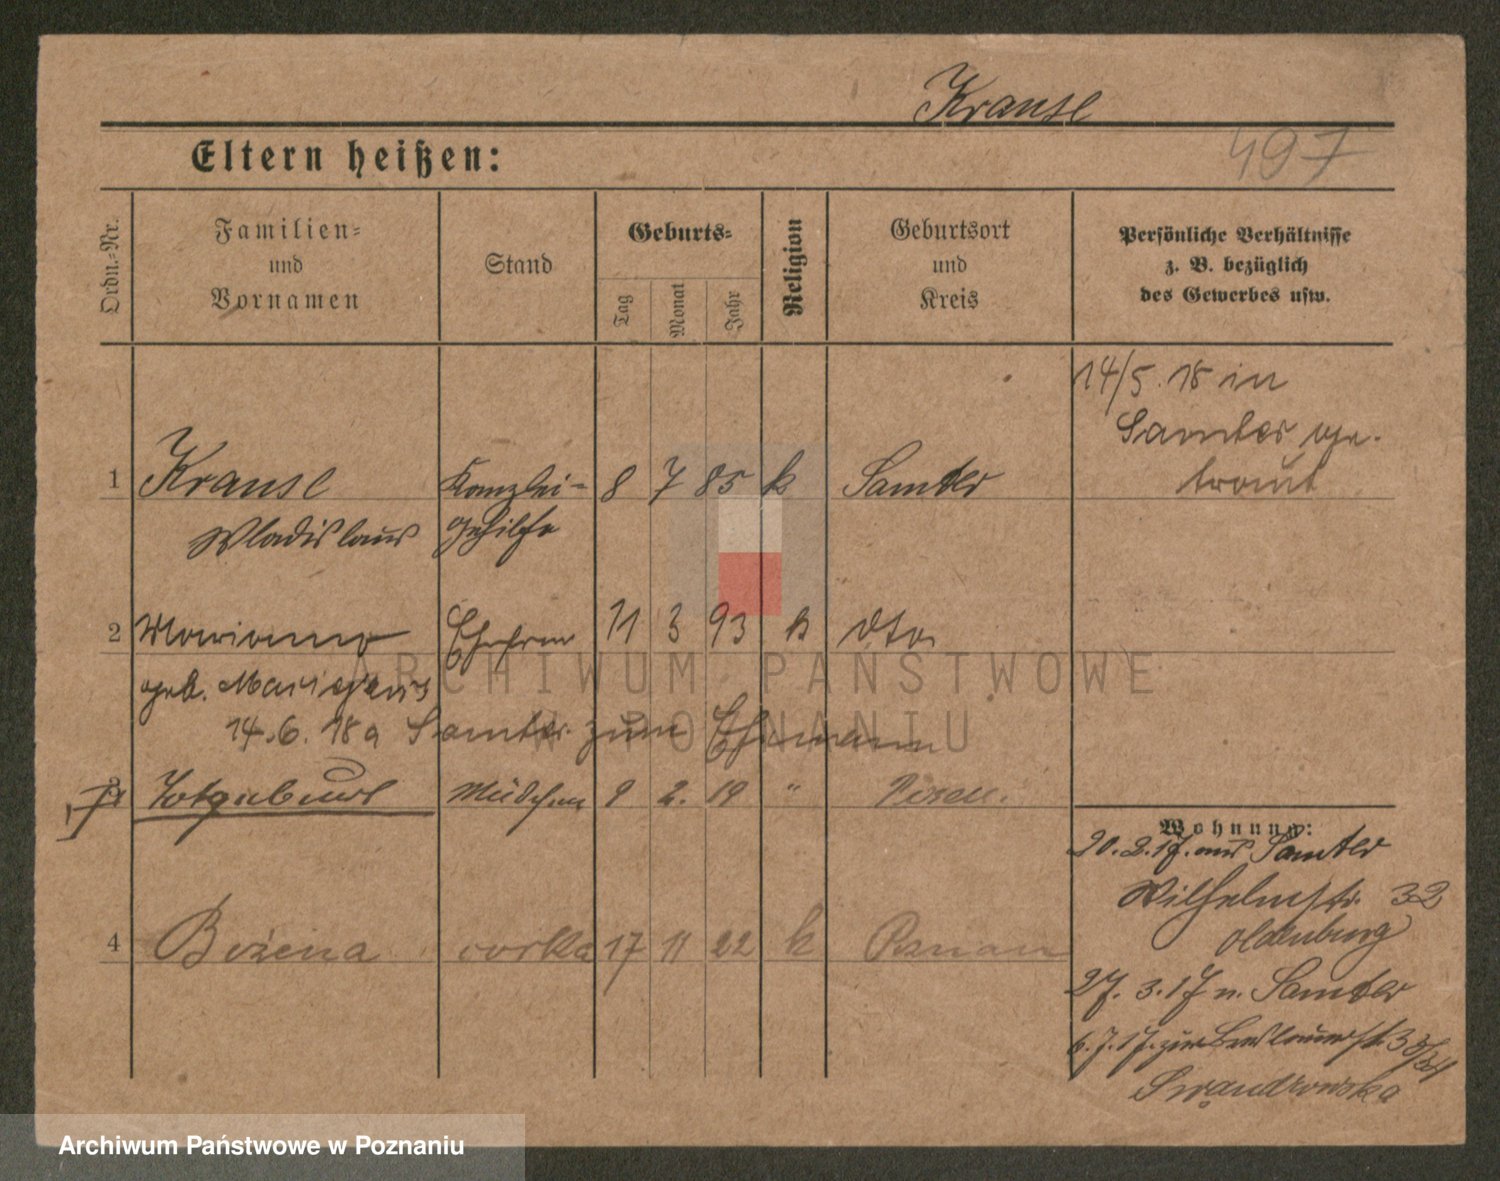 Krause
497
Eltern heißen:
Ordn.-Nr.
Familien-
und
Vornamen
Stand
Geburts-
Tag
Monat
Jahr
Religion
Geburtsort
und
Kreis
Persönliche Verhältnisse
z. B. bezüglich
des Gewerbes usw.
14/5. 18 in
Samter ge-
traut
1 Krause Kanzlei- 8 7 85 k Samter
Wladislaus gehilfe
2 Marianna Ehefrau 11 3 93 k dto
geb.
14.6.18 a Samter zum Ehemann
3 Totgeburt Mädchen 9 2. 19 " Posen.
4 Bożena córka 17 11 22 k Poznań
Wohnung:
20.2.17. aus Samter
Wilhelmstr. 32
Oldenburg
27.3.17 n. Samter
6.7.17. zur. Breslauerstr. 33/34
Swandrowska
ARCHIWUM PAŃSTWOWE
W POZNANIU
Archiwum Państwowe w Poznaniu